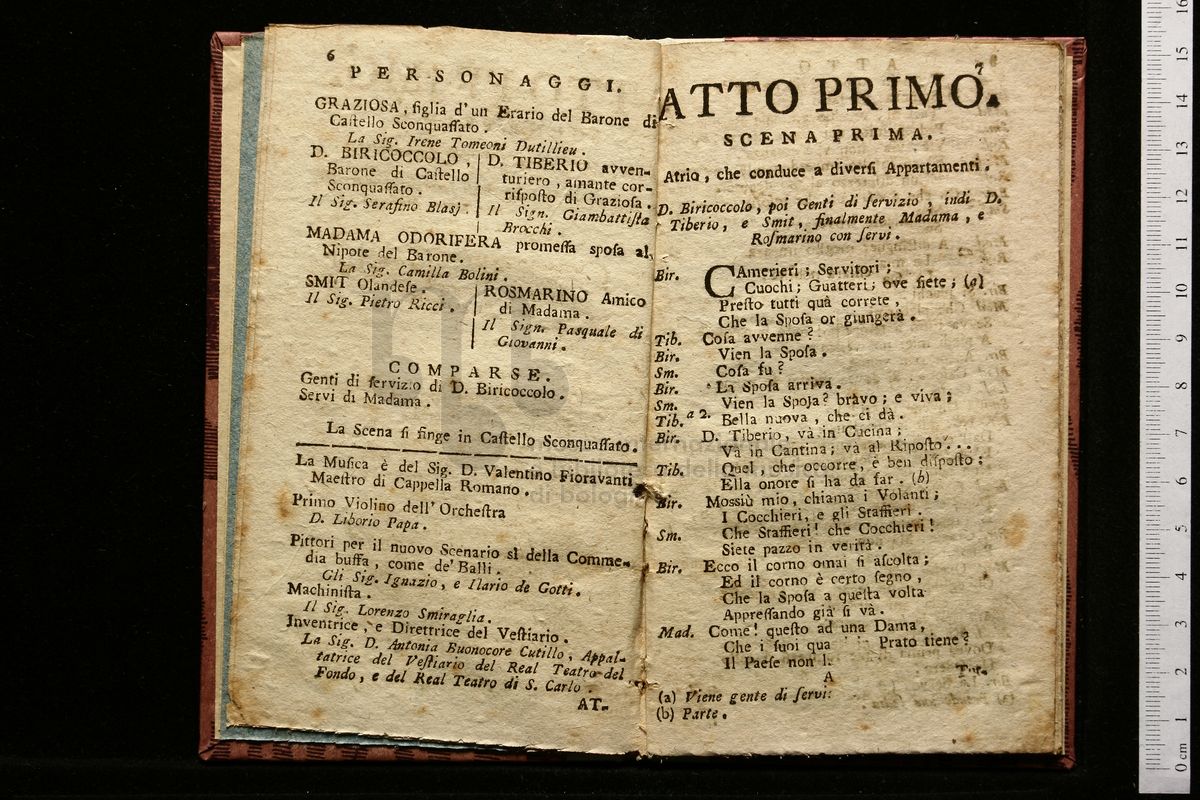 6
PERSONAGGI.
GRAZIOSA, figlia d'un Erario del Barone di
Castello Sconquassato.
La Sig. Irene Tomeoni Dutillieu.
D. BIRICOCCOLO,
Barone di Castello
Sconquassato.
Il Sig. Serafino Blasj.
D. TIBERIO avven-
turiero, amante cor-
risposto di Graziosa.
Il Sign. Giambattista
Brocchi.
MADAMA ODORIFERA promessa sposa al
Nipote del Barone.
La Sig. Camilla Bolini.
SMIT Olandese.
Il Sig. Pietro Ricci.
ROSMARINO Amico
di Madama.
Il Sign. Pasquale di
Giovanni.
COMPARSE.
Genti di servizio di D. Biricoccolo.
Servi di Madama.
La Scena si finge in Castello Sconquassato.
La Musica è del Sig. D. Valentino Fioravanti
Maestro di Cappella Romano.
Primo Violino dell' Orchestra
D. Liborio Papa.
Pittori per il nuovo Scenario sì della Comme-
dia buffa, come de' Balli.
Gli Sig. Ignazio, e Ilario de Gotti.
Machinista.
Il Sig. Lorenzo Smiraglia.
Inventrice, e Direttrice del Vestiario.
La Sig. D. Antonia Buonocore Cutillo, Appal-
tatrice del Vestiario del Real Teatro del
Fondo, e del Real Teatro di S. Carlo.
AT-
7
ATTO PRIMO.
SCENA PRIMA.
Atrio, che conduce a diversi Appartamenti.
D. Biricoccolo, poi Genti di servizio, indi D.
Tiberio, e Smit, finalmente Madama, e
Rosmarino con servi.
Bir. CAmerieri; Servitori;
Cuochi; Guatteri; ove siete; (a)
Presto tutti quà correte,
Che la Sposa or giungerà.
Tib. Cosa avvenne?
Bir. Vien la Sposa.
Sm. Cosa fu?
Bir. La Sposa arriva.
Sm. Vien la Sposa? bravo; e viva;
Tib. a 2. Bella nuova, che ci dà.
Bir. D. Tiberio, và in Cucina;
Và in Cantina; và al Riposto...
Tib. Quel, che occorre, è ben disposto;
Ella onore si ha da far. (b)
Bir. Mossiù mio, chiama i Volanti;
I Cocchieri, e gli Staffieri.
Sm. Che Staffieri! che Cocchieri!
Siete pazzo in verità.
Bir. Ecco il corno omai si ascolta;
Ed il corno è certo segno,
Che la Sposa a questa volta
Appressando già si và.
Mad. Come! questo ad una Dama,
Che i suoi qua Prato tiene?
Il Paese non
A
Tut-
(a) Viene gente di servi
(b) Parte.